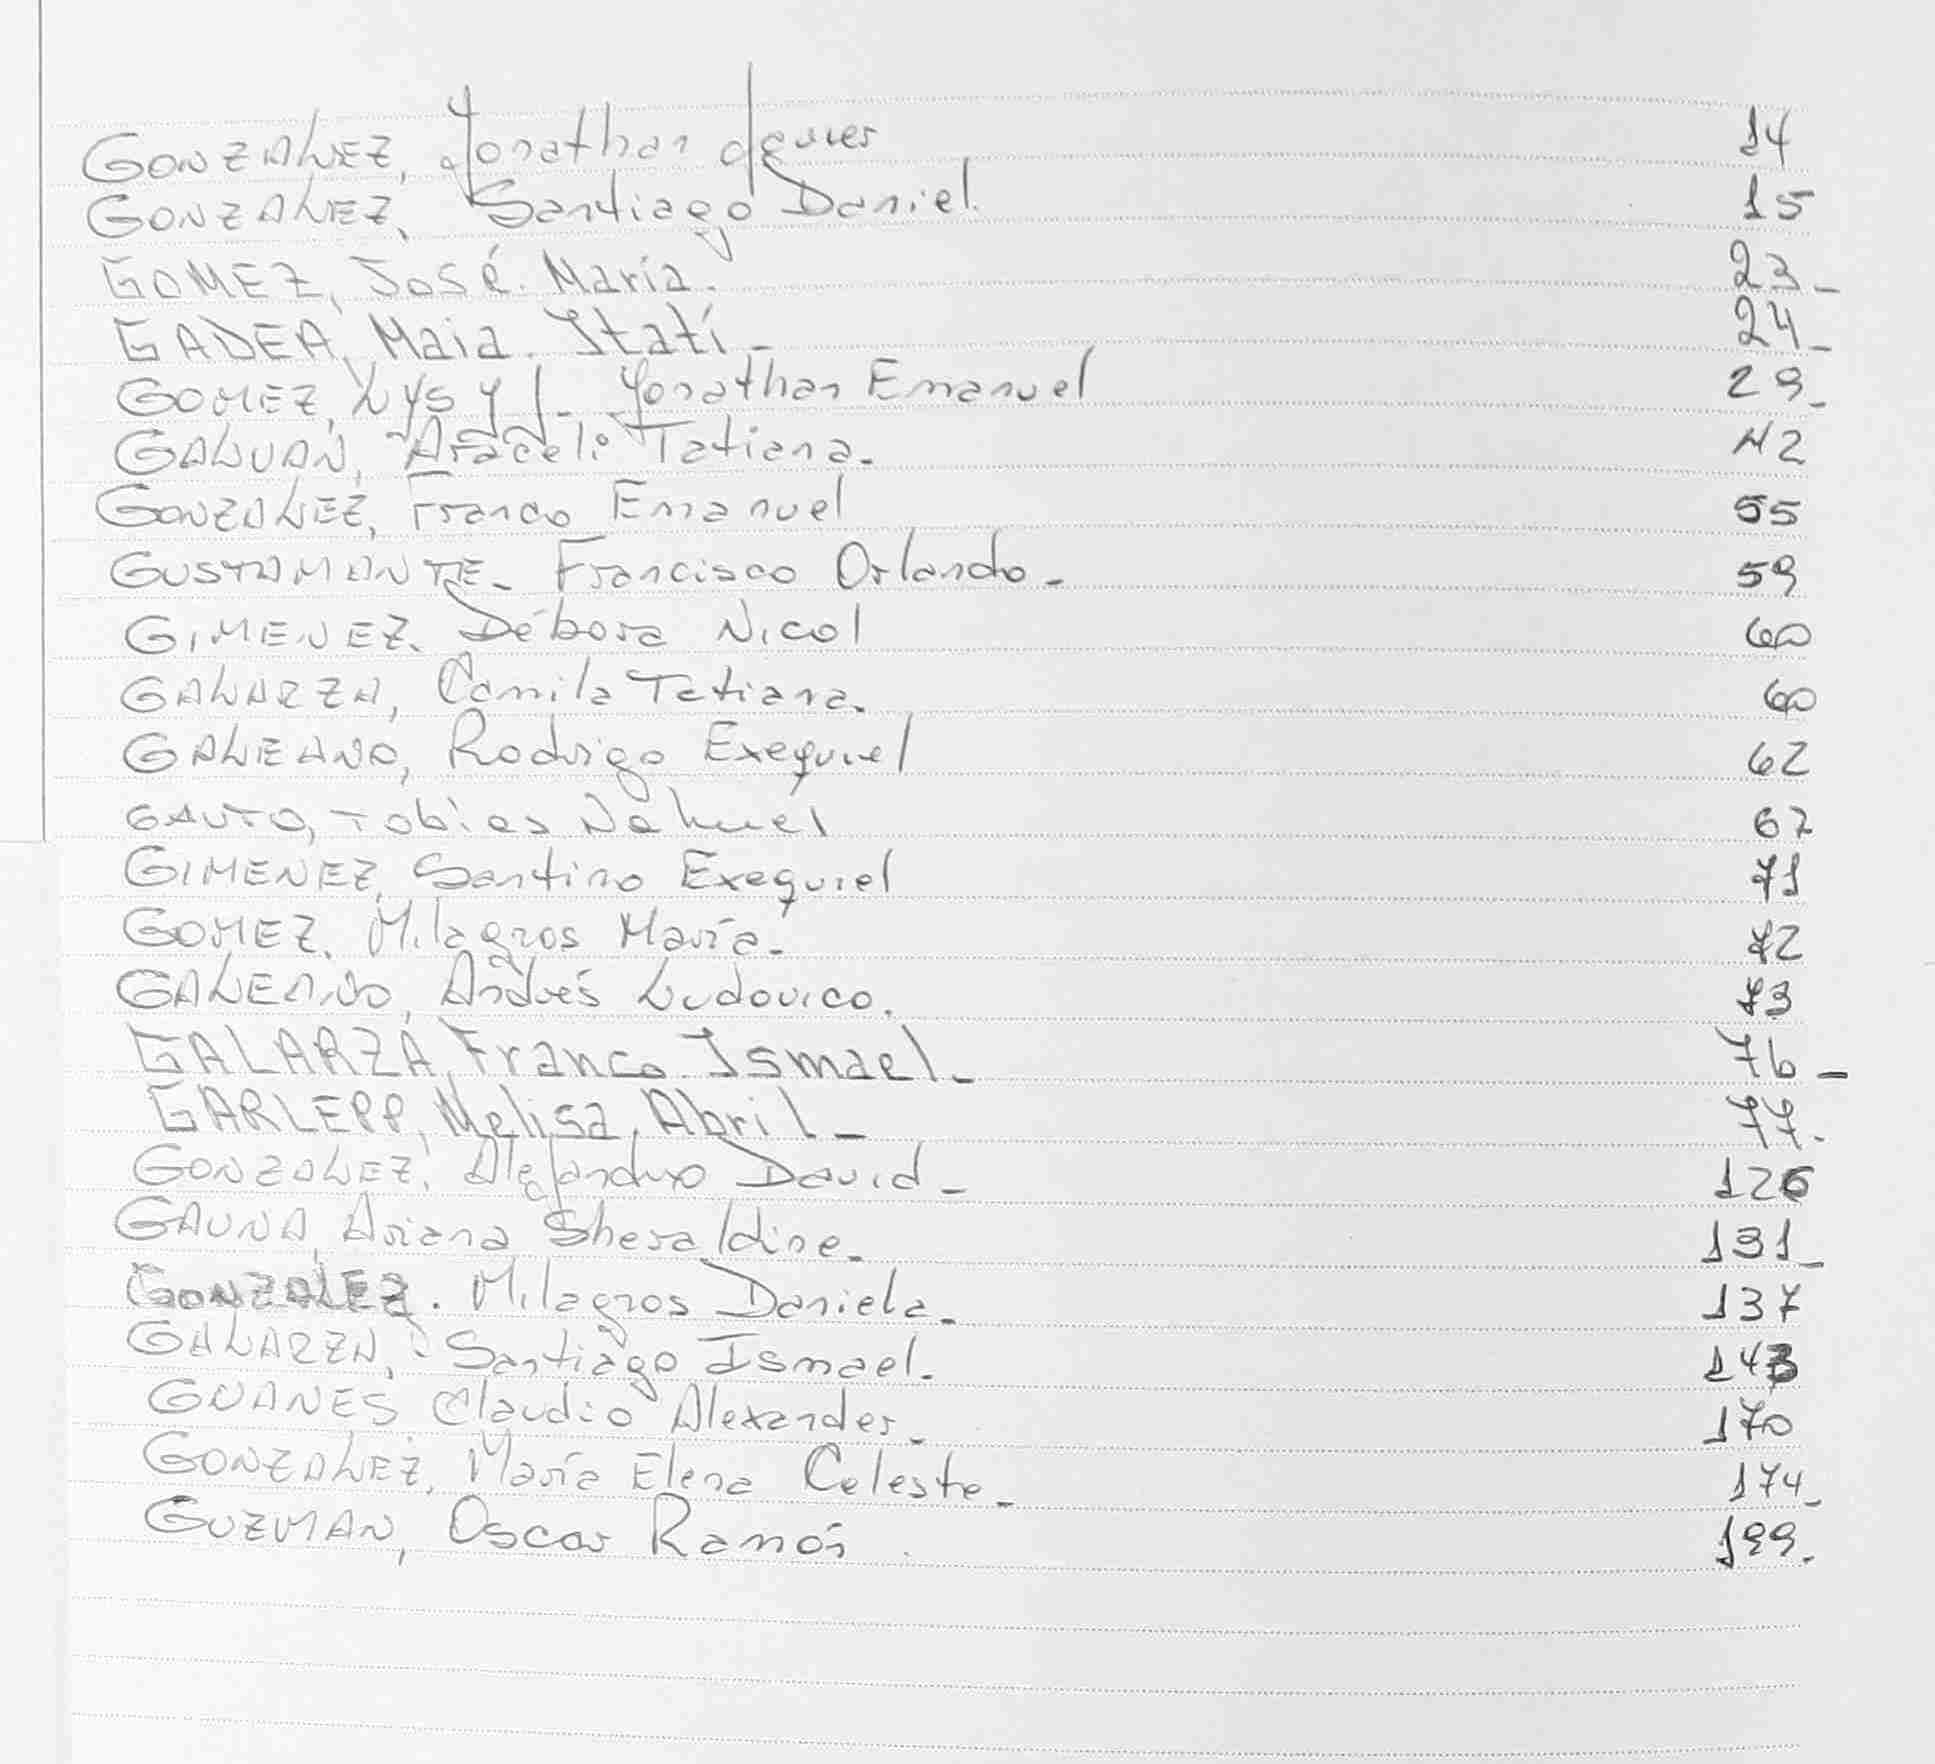 GONZALEZ, Jonathan Javier 14
GONZALEZ, Santiago Daniel. 15
GOMEZ, José. María. 23_
GADEA, Maia. Itatí_ 24_
GOMEZ, Jonathan Emanuel 29_
GALVAN, Araceli Tatiana. 42
GONZALEZ, Franco Emanuel 55
GUSTAMANTE_ Francisco Orlando_ 59
GIMENEZ. Débora Nicol 60
GALARZA, Camila Tatiana. 60
GALEANO, Rodrigo Exequiel 62
GAUTO, Tobias Nahuel 67
GIMENEZ, Santino Exequiel 71
GOMEZ. Milagros María_ 72
GALEANO, Andrés Ludovico. 73
GALARZA, Franco Ismael_ 76_
GARLEPP, Melisa, Abril_ 77.
GONZALEZ, Alejandro David_ 126
GAUNA, Ariana Sheraldine_ 131_
GONZALEZ. Milagros Daniela_ 137
GALARZA, Santiago Ismael. 143
GUANES Claudio Alexander_ 170
GONZALEZ, María Elena Celeste_ 174_
GUZMAN, Oscar Ramón 199.